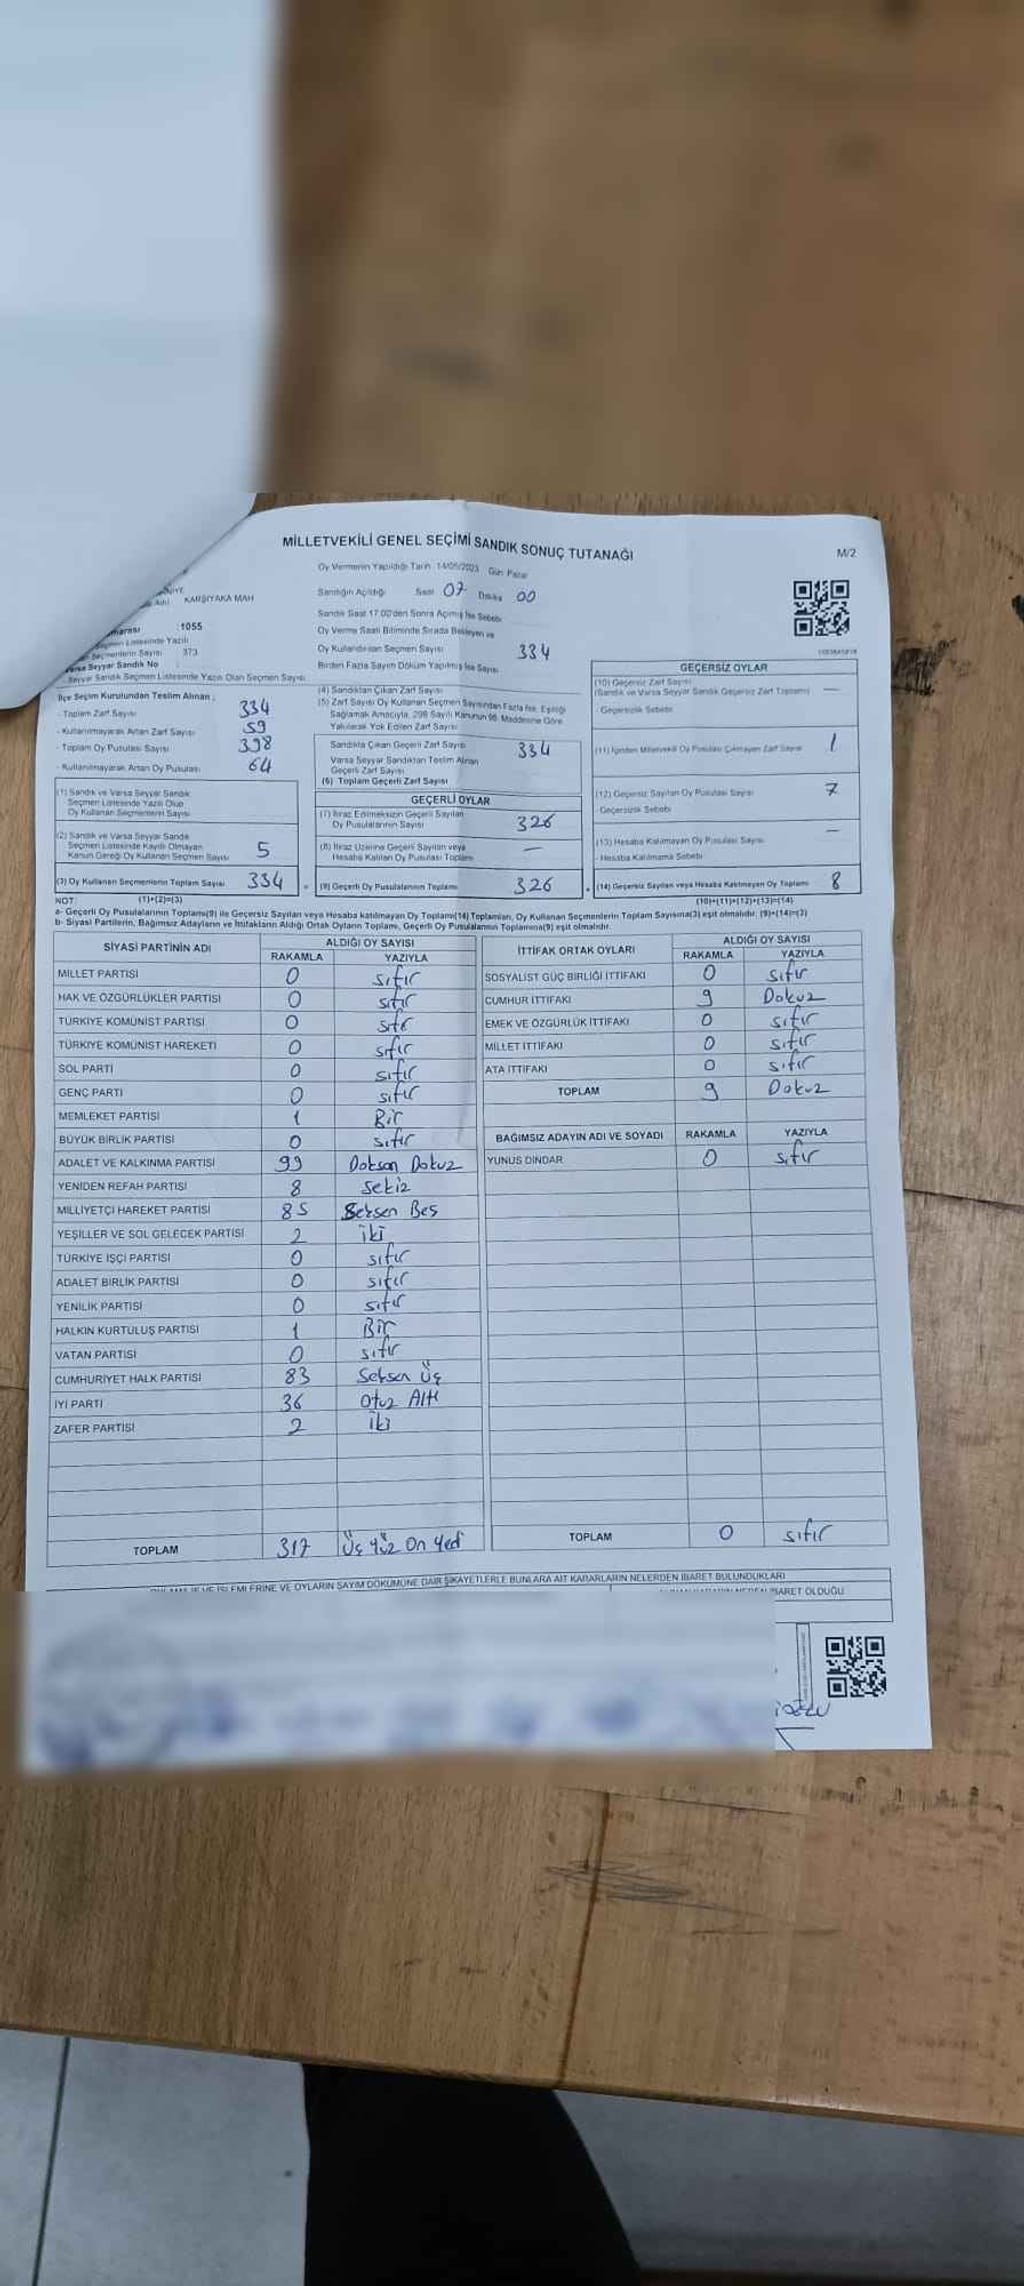 MİLLETVEKİLİ GENEL SEÇİMİ SANDIK SONUÇ TUTANAĞI
M/2
Oy Vermenin Yapıldığı Tarih 14/05/2023 Gün Pazar
KARŞIYAKA MAH
Sandığın Açıldığı Saat 07 Dakika 00
Sandık Saat 17:00'den Sonra Açılmış İse Sebebi
1055
Oy Verme Saati Bitiminde Sırada Bekleyen ve
Oy Kullandırılan Seçmen Sayısı 334
373
Birden Fazla Sayım Döküm Yapılmış İse Sayısı
Varsa Seyyar Sandık No
Seyyar Sandık Seçmen Listesinde Yazılı Olan Seçmen Sayısı
İlçe Seçim Kurulundan Teslim Alınan ;
- Toplam Zarf Sayısı 334
- Kullanılmayarak Artan Zarf Sayısı 59
- Toplam Oy Pusulası Sayısı 398
- Kullanılmayarak Artan Oy Pusulası 64
(1) Sandık ve Varsa Seyyar Sandık
Seçmen Listesinde Yazılı Olup
Oy Kullanan Seçmenlerin Sayısı
(2) Sandık ve Varsa Seyyar Sandık
Seçmen Listesinde Kayıtlı Olmayan
Kanun Gereği Oy Kullanan Seçmen Sayısı 5
(3) Oy Kullanan Seçmenlerin Toplam Sayısı 334
(4) Sandıktan Çıkan Zarf Sayısı
(5) Zarf Sayısı Oy Kullanan Seçmen Sayısından Fazla İse, Eşitliği
Sağlamak Amacıyla, 298 Sayılı Kanunun 98. Maddesine Göre
Yakılarak Yok Edilen Zarf Sayısı
Sandıkta Çıkan Geçerli Zarf Sayısı 334
Varsa Seyyar Sandıktan Teslim Alınan
Geçerli Zarf Sayısı
(6) Toplam Geçerli Zarf Sayısı
GEÇERLİ OYLAR
(7) İtiraz Edilmeksizin Geçerli Sayılan
Oy Pusulalarının Sayısı 326
(8) İtiraz Üzerine Geçerli Sayılan veya
Hesaba Katılan Oy Pusulası Toplamı —
(9) Geçerli Oy Pusulalarının Toplamı 326
GEÇERSİZ OYLAR
(10) Geçersiz Zarf Sayısı
(Sandık ve Varsa Seyyar Sandık Geçersiz Zarf Toplamı) —
- Geçersizlik Sebebi
(11) İçinden Milletvekili Oy Pusulası Çıkmayan Zarf Sayısı 1
(12) Geçersiz Sayılan Oy Pusulası Sayısı 7
- Geçersizlik Sebebi
(13) Hesaba Katılmayan Oy Pusulası Sayısı —
- Hesaba Katılmama Sebebi
(14) Geçersiz Sayılan veya Hesaba Katılmayan Oy Toplamı 8
NOT: (1)+(2)=(3) (10)+(11)+(12)+(13)=(14)
a- Geçerli Oy Pusulalarının Toplamı(9) ile Geçersiz Sayılan veya Hesaba katılmayan Oy Toplamı(14) Toplamları, Oy Kullanan Seçmenlerin Toplam Sayısına(3) eşit olmalıdır. (9)+(14)=(3)
b- Siyasi Partilerin, Bağımsız Adayların ve İttifakların Aldığı Ortak Oyların Toplamı, Geçerli Oy Pusulalarının Toplamına(9) eşit olmalıdır.
SİYASİ PARTİNİN ADI ALDIĞI OY SAYISI
RAKAMLA YAZIYLA
MİLLET PARTİSİ 0 sıfır
HAK VE ÖZGÜRLÜKLER PARTİSİ 0 sıfır
TÜRKİYE KOMÜNİST PARTİSİ 0 sıfır
TÜRKİYE KOMÜNİST HAREKETİ 0 sıfır
SOL PARTİ 0 sıfır
GENÇ PARTİ 0 sıfır
MEMLEKET PARTİSİ 1 Bir
BÜYÜK BİRLİK PARTİSİ 0 sıfır
ADALET VE KALKINMA PARTİSİ 99 Doksan Dokuz
YENİDEN REFAH PARTİSİ 8 sekiz
MİLLİYETÇİ HAREKET PARTİSİ 85 Seksen Beş
YEŞİLLER VE SOL GELECEK PARTİSİ 2 iki
TÜRKİYE İŞÇİ PARTİSİ 0 sıfır
ADALET BİRLİK PARTİSİ 0 sıfır
YENİLİK PARTİSİ 0 sıfır
HALKIN KURTULUŞ PARTİSİ 1 Bir
VATAN PARTİSİ 0 sıfır
CUMHURİYET HALK PARTİSİ 83 Seksen Üç
İYİ PARTİ 36 Otuz Altı
ZAFER PARTİSİ 2 iki
TOPLAM 317 Üç Yüz On Yedi
İTTİFAK ORTAK OYLARI ALDIĞI OY SAYISI
RAKAMLA YAZIYLA
SOSYALİST GÜÇ BİRLİĞİ İTTİFAKI 0 sıfır
CUMHUR İTTİFAKI 9 Dokuz
EMEK VE ÖZGÜRLÜK İTTİFAKI 0 sıfır
MİLLET İTTİFAKI 0 sıfır
ATA İTTİFAKI 0 sıfır
TOPLAM 9 Dokuz
BAĞIMSIZ ADAYIN ADI VE SOYADI RAKAMLA YAZIYLA
YUNUS DİNDAR 0 sıfır
TOPLAM 0 sıfır
İŞLEMLERİNE VE OYLARIN SAYIM DÖKÜMÜNE DAİR ŞİKAYETLERLE BUNLARA AİT KARARLARIN NELERDEN İBARET BULUNDUKLARI
İBARET OLDUĞU